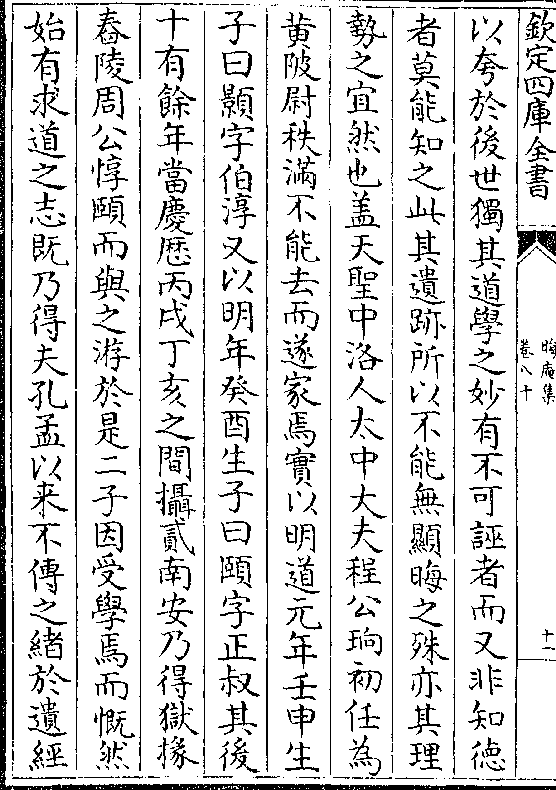 欽定四庫全書
晦庵集
卷八十
十一
以夸於後世獨其道學之妙有不可誣者而又非知德
者莫能知之此其遺跡所以不能無顯晦之殊亦其理
勢之宜然也盖天聖中洛人太中大夫程公珦初任為
黄陂尉秩滿不能去而遂家焉實以明道元年壬申生
子曰顥字伯淳又以明年癸酉生子曰頤字正叔其後
十有餘年當慶厯丙戌丁亥之間攝貳南安乃得獄掾
舂陵周公惇頤而與之游於是二子因受學焉而慨然
始有求道之志既乃得夫孔孟以来不傳之緒於遺經